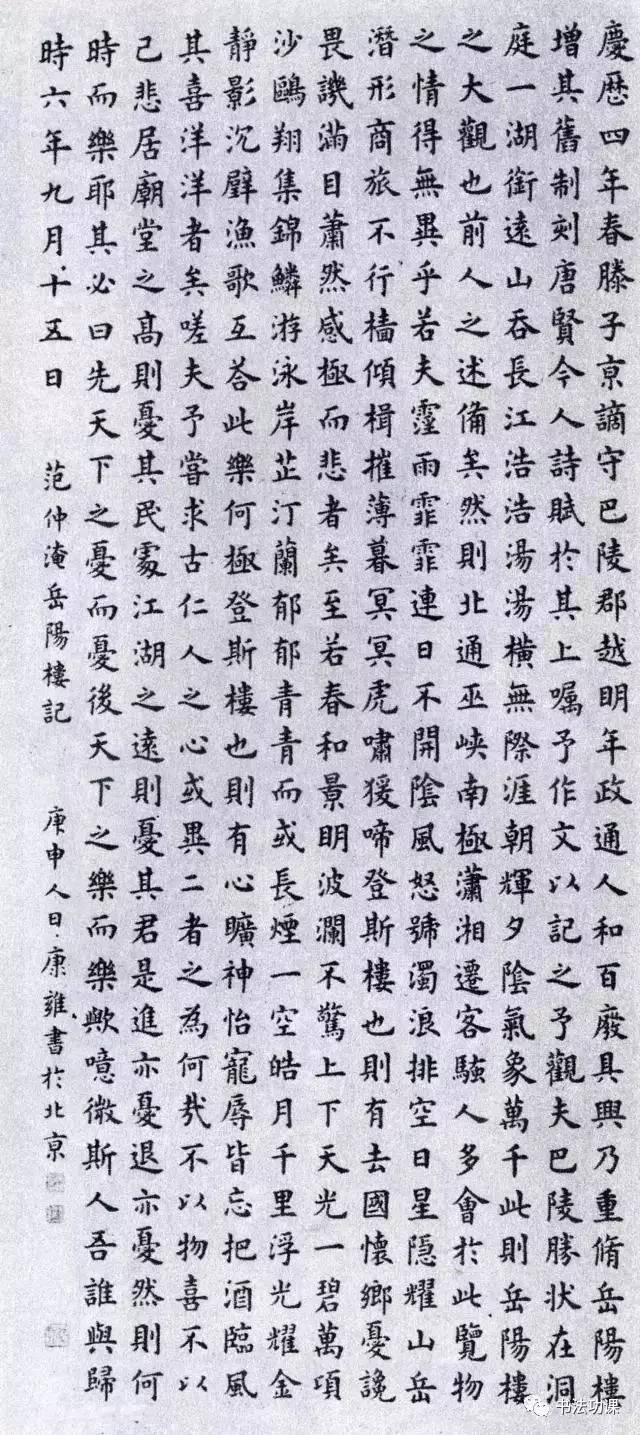 慶歷四年春滕子京謫守巴陵郡越明年政通人和百廢具興乃重脩岳陽樓
增其舊制刻唐賢今人詩賦於其上囑予作文以記之予觀夫巴陵勝狀在洞
庭一湖銜遠山吞長江浩浩湯湯橫無際涯朝輝夕陰氣象萬千此則岳陽樓
之大觀也前人之述備矣然則北通巫峽南極瀟湘遷客騷人多會於此覽物
之情得無異乎若夫霪雨霏霏連日不開陰風怒號濁浪排空日星隱耀山岳
潛形商旅不行檣傾楫摧薄暮冥冥虎嘯猨啼登斯樓也則有去國懷鄉憂讒
畏譏滿目蕭然感極而悲者矣至若春和景明波瀾不驚上下天光一碧萬頃
沙鷗翔集錦鱗游泳岸芷汀蘭郁郁青青而或長煙一空皓月千里浮光耀金
靜影沉璧漁歌互荅此樂何極登斯樓也則有心曠神怡寵辱皆忘把酒臨風
其喜洋洋者矣嗟夫予嘗求古仁人之心或異二者之為何哉不以物喜不以
己悲居廟堂之高則憂其民處江湖之遠則憂其君是進亦憂退亦憂然則何
時而樂耶其必曰先天下之憂而憂後天下之樂而樂歟噫微斯人吾誰與歸
時六年九月十五日 范仲淹岳陽樓記 庚申人日康雍書於北京
书法功课